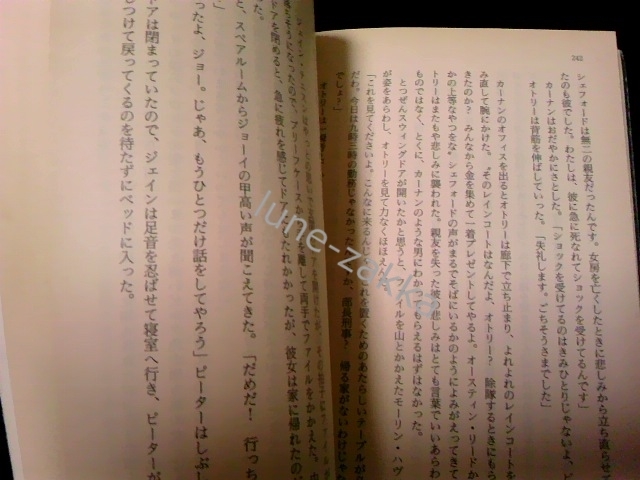 242
シェフォードは無二の親友だったんです。女房を亡くしたときに悲しみから立ち直らせて
たのも彼でした。わたしは、彼に急に死なれてショックを受けてるんです」
カーナンはおだやかにさとした。「ショックを受けてるのはきみひとりじゃないよ、ビ
オトリーは背筋を伸ばしていった。「失礼します。ごちそうさまでした」
カーナンのオフィスを出るとオトリーは廊下で立ち止まり、よれよれのレインコートを
み直して腕にかけた。そのレインコートはなんだよ、オトリー？ 除隊するときにもら
きたのか？ みんなから金を集めて一着プレゼントしてやるよ。オースティン・リードか
かの上等なやつをな。シェフォードの声がまるでそばにいるかのようによみがえってきて
トリーはまたもや悲しみに襲われた。親友を失った彼の悲しみはとても言葉でいいあらわ
ものではなく、とくに、カーナンのような男にわかってもらえるはずはなかった。
とつぜんスウィングドアが開いたかと思うと、ファイルを山とかかえたモーリン・ハヴ
が姿をあらわし、オトリーを見て力なくほほえ
「これを見てくださいよ。こんなに来るんじ れを置くためのあたらしいテーブルが
だわ。今日は九時三時の勤務じゃなかった か、部長刑事？ 帰る家がないわけじゃな
でしょ」
ドアを閉めると、急に疲れを感じてドアにもたれかかったが、彼女は家に帰れたのが
った。
と、スペアルームからジョーイの甲高い声が聞こえてきた。「だめだ！ 行っち
ったよ、ジョー。じゃあ、もうひとつだけ話をしてやろう」ピーターはしぶし
ドアは閉まっていたので、ジェインは足音を忍ばせて寝室へ行き、ピーターが
しつけて戻ってくるのを待たずにベッドに入った。
June-zakka